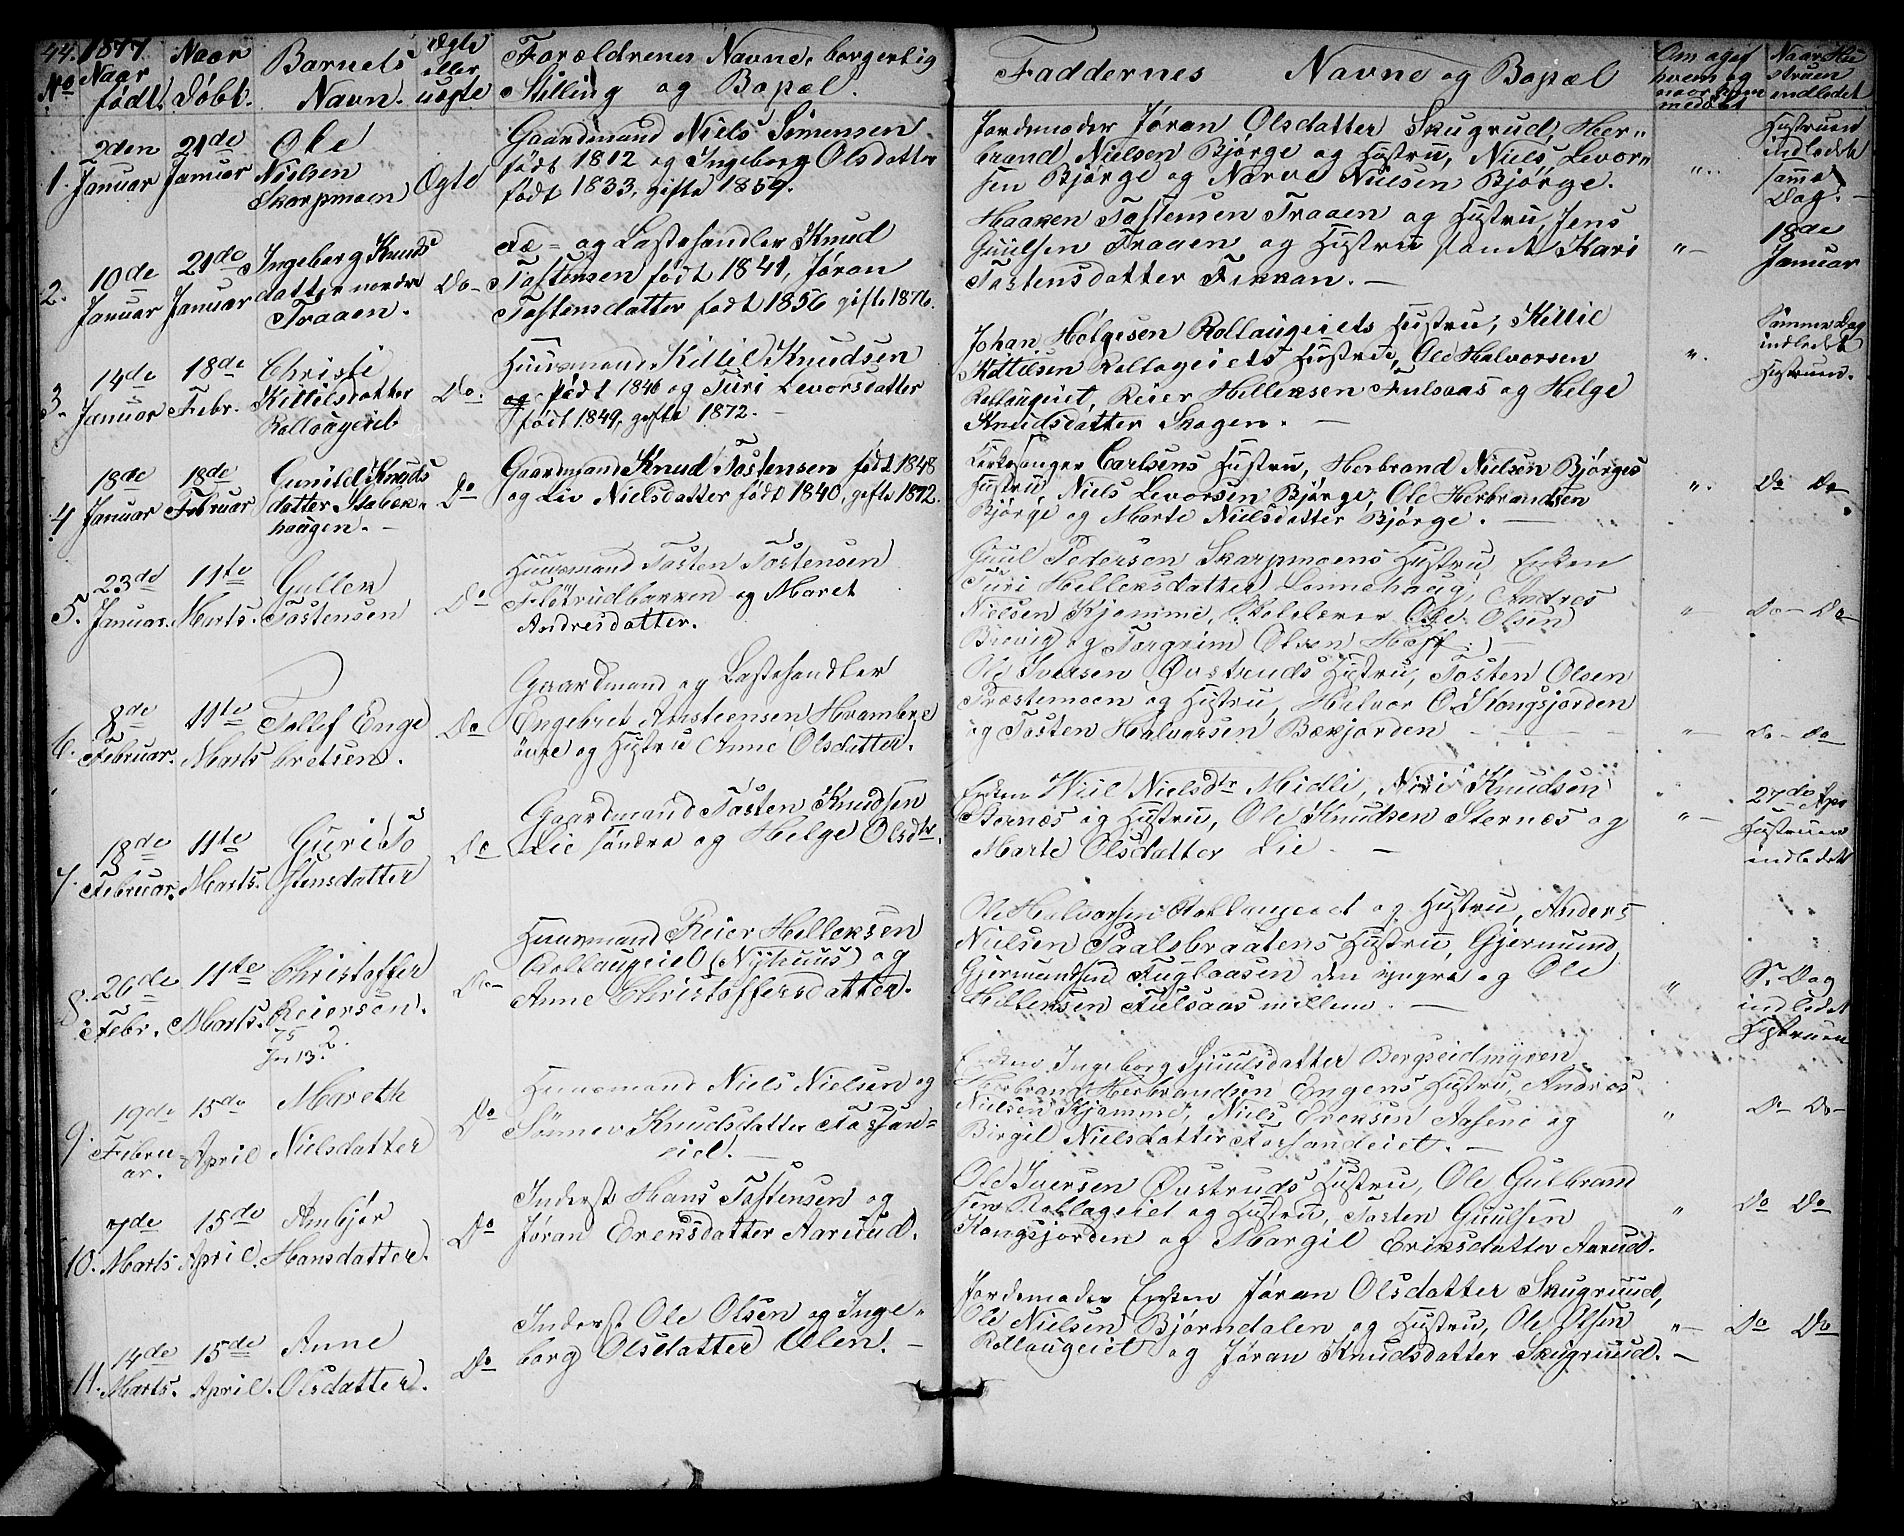 44. 1877
No Naar født. Naar døbt. Barnets Navn. Ægte eller uægte Forældrenes Navne, borgerlig Stilling og Bopæl. Faddernes Navne og Bopæl Naar Hustruen indledet
1. 2den Januar 21de Januar Ole Nielsen Skarpmoen Ægte
Gaardmand Niels Simensen
født 1812 og Ingeborg Olsdatter
født 1833, gifte 1859.
Jordemoder Jøran Olsdatter Skugrud, Her-
brand Nielsen Bjørge og Hustru, Niels Levor-
sen Bjørge og Narve Nielsen Bjørge.
Hustruen indledet samme Dag.
2. 10de Januar 21de Januar Ingeborg Knuds
datter nordre
Traaen. Do
Fæ- og Lastehandler Knud
Tostensen født 1841, Jøran
Tostensdatter født 1856 gifte 1876.
Haaken Tostensen Traaen og Hustru, Jens
Guulsen Traaen og Hustru samt Kari
Tostensdatter Fikkan. —
18de Januar
3. 14de Januar 18de Febr. Christi
Kittilsdatter
Rollaugeiet Do.
Huusmand Kittil Knudsen
født 1846 og Turi Levorsdatter
født 1849, gifte 1872. —
Johan Helgesen Rollaugeiets Hustru, Kittil
Kittilsen Rollageiets Hustru, Ole Halvorsen
Rollaugeiet, Reier Helleksen Fulsaas og Helge
Knudsdatter Skogen. —
Samme Dag
indledet
Hustruen.
4. 18de Januar 18de Februar Gunild Knuds
datter Stabæk-
haugen. — Do
Gaardmand Knud Tostensen født 1848
og Liv Nielsdatter født 1840, gifte 1872.
Kirkesanger Carlsens Hustru, Herbrand Nielsen Bjørges
Hustru, Niels Levorsen Bjørge, Ole Herbrandsen
Bjørge og Marte Nielsdatter Bjørge. —
Do Do
5. 23de Januar. 11te Marts. Gullek
Tostensen Do
Huusmand Tosten Tostensen
Fløtrudbakken og Maret
Andresdatter.
Guul Pedersen Skarpmoens Hustru, Enken
Turi Helleksdatter Lonnehaug, Andres
Nielsen Kjomme, Skolelærer Ole Olsen
Brevig og Torgrim Olsen Hoff. —
Do Do
6. 8de Februar. 11te Marts Tollef Enge
bretsen. Do
Gaardmand og Lastehandler
Engebret Amsteensen Hvambre
øvre og Hustru Anne Olsdatter.
Ole Iversen Øvstruds Hustru, Tosten Olsen
Præstemoen og Hustru, Halvor O. Kongsjorden
og Tosten Halvorsen Bækjorden
do do
7. 18de Februar. 11te Marts. Guri To
stensdatter Do
Gaardmand Tosten Knudsen
Lie søndre og Helge Olsdtr.
Enken Niels dtr Midli, Knudsen
Sternes og Hustru, Ole Knudsen Sternes og
Marte Olsdatter Lie. —
27de Apr
Hustruen
indledet
8. 26de Febr. 11te Marts. Christoffer
Reiersen. Do
Huusmand Reier Helleksen
Rollaugeiet (Nyhuus) og
Anne Christoffersdatter.
Ole Halvorsen Rollaugeiet og Hustru, Anders
Nielsen Paalsbraatens Hustru, Gjermund
Gjermundsen Fuglaasen den yngre og Ole
Helleksen Fulsaas millem. —
S. Dag
indledet
Hustruen
9. 19de Febru
ar. 15de April Mareth
Nielsdatter Do
Huusmand Niels Nielsen og
Sønnev Knudsdatter Fossan-
eid. —
Enken Ingeborg Sjuulsdatter Bergseidmyren
Herbrand Herbrandsen Engens Hustru, Andres
Nielsen Kjomme, Niels Eriksen Aasene og
Birgit Nielsdatter Fossandeiet. —
Do Do
10. 7de Marts 15de April. Ambjør
Hansdatter. Do
Inderst Hans Tostensen og
Jøran Erensdatter Aaruud.
Ole Iversen Øvstruds Hustru, Ole Gulbrand
sen Rollageiet og Hustru, Tosten Guulsen
Kongsjorden og Margit Eriksdatter Aaruud.
Do Do
11. 14de Marts. 15de April. Anne
Olsdatter. Do
Inderst Ole Olsen og Inge-
borg Olsdatter Ulen. —
Jordemoder Enken Jøran Olsdatter Skugruud,
Ole Nielsen Bjørndalen og Hustru, Ole Olsen
Rollaugeiet og Jøran Knudsdatter Skugruud. —
Do Do